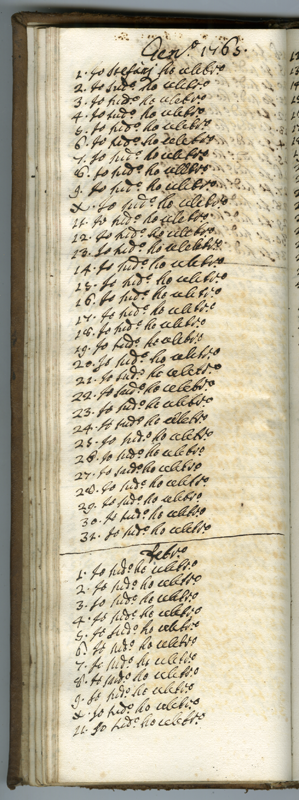 Gen.º 1763.
1. Io Stefanj ho celebr.º
2. Io sud.º ho celebr.º
3. Io sud.º ho celebr.º
4. Io sud.º ho celebr.º
5. Io sud.º ho celebr.º
6. Io sud.º ho celebr.º
7. Io sud.º ho celebr.º
8. Io sud.º ho celebr.º
9. Io sud.º ho celebr.º
X. Io sud.º ho celebr.º
11. Io sud.º ho celebr.º
12. Io sud.º ho celebr.º
13. Io sud.º ho celebr.º
14. Io sud.º ho celebr.º
15. Io sud.º ho celebr.º
16. Io sud.º ho celebr.º
17. Io sud.º ho celebr.º
18. Io sud.º ho celebr.º
19. Io sud.º ho celebr.º
20. Io sud.º ho celebr.º
21. Io sud.º ho celebr.º
22. Io sud.º ho celebr.º
23. Io sud.º ho celebr.º
24. Io sud.º ho celebr.º
25. Io sud.º ho celebr.º
26. Io sud.º ho celebr.º
27. Io sud.º ho celebr.º
28. Io sud.º ho celebr.º
29. Io sud.º ho celebr.º
30. Io sud.º ho celebr.º
31. Io sud.º ho celebr.º
Febr.º
1. Io sud.º ho celebr.º
2. Io sud.º ho celebr.º
3. Io sud.º ho celebr.º
4. Io sud.º ho celebr.º
5. Io sud.º ho celebr.º
6. Io sud.º ho celebr.º
7. Io sud.º ho celebr.º
8. Io sud.º ho celebr.º
9. Io sud.º ho celebr.º
X. Io sud.º ho celebr.º
11. Io sud.º ho celebr.º